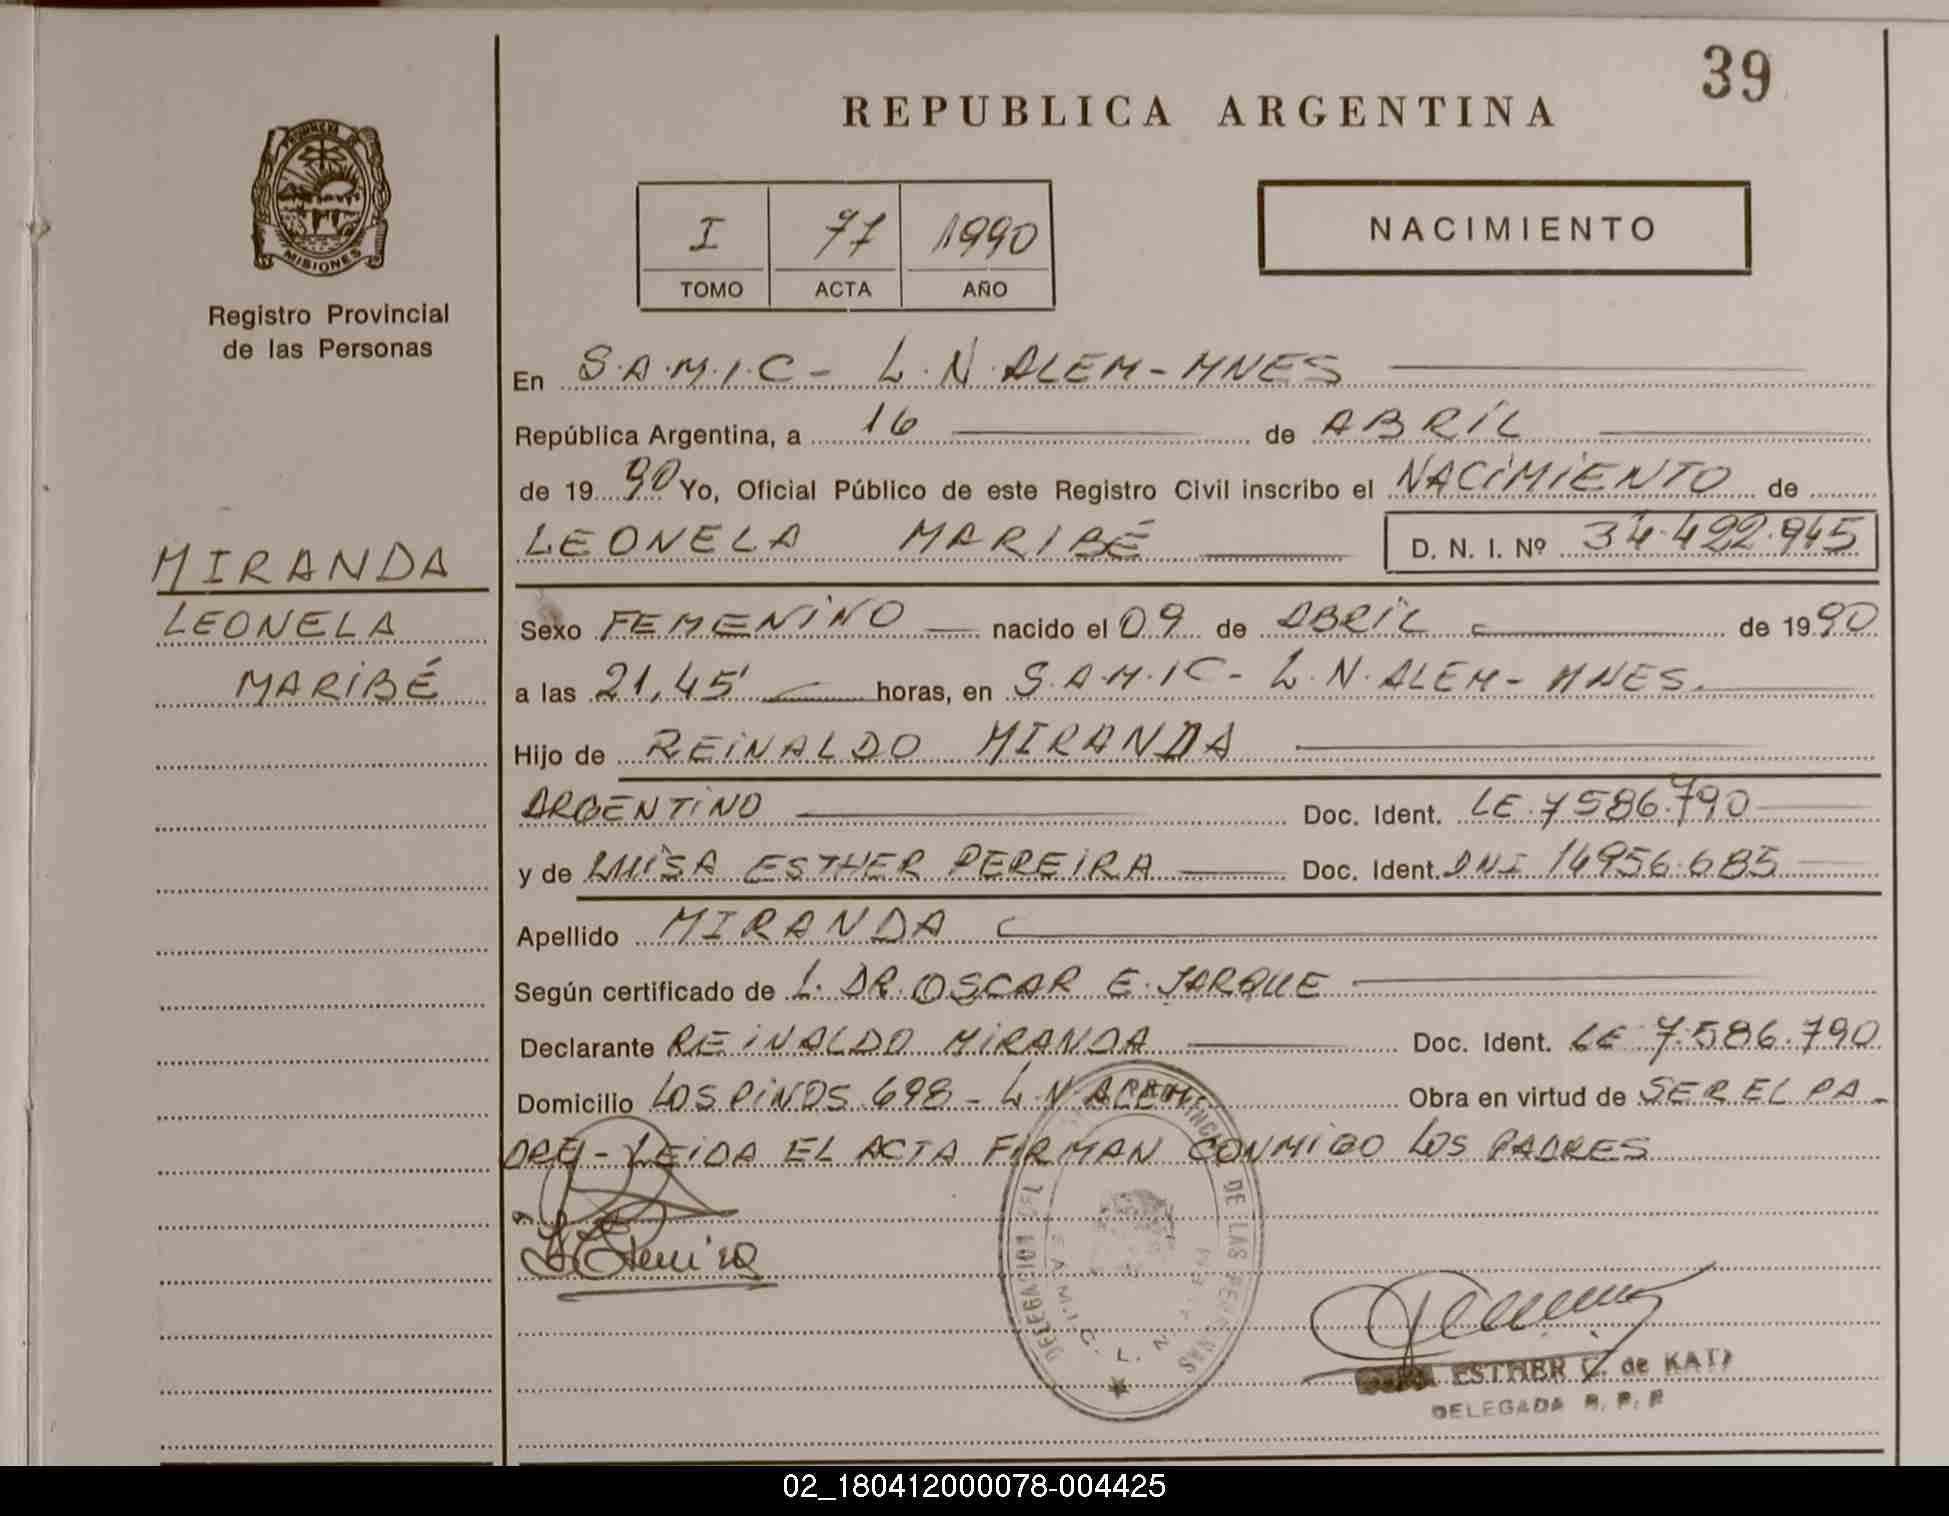 39
REPUBLICA ARGENTINA
PROVINCIA DE
MISIONES
Registro Provincial
de las Personas
I 77 1990
TOMO ACTA AÑO
NACIMIENTO
En S.A.M.I.C - L.N. ALEM - MNES
República Argentina, a 16 de ABRIL
de 1990 Yo, Oficial Público de este Registro Civil inscribo el NACIMIENTO de
LEONELA MARIBÉ D. N. I. Nº 34.422.945
MIRANDA
LEONELA
MARIBÉ
Sexo FEMENINO nacido el 09 de ABRIL de 1990
a las 21,45' horas, en S.A.M.I.C - L.N. ALEM - MNES.
Hijo de REINALDO MIRANDA
ARGENTINO Doc. Ident. LE 7586.790
y de LUISA ESTHER PEREIRA Doc. Ident. DNI 14956.685
Apellido MIRANDA
Según certificado de L. DR. OSCAR E. JARQUE
Declarante REINALDO MIRANDA Doc. Ident. LE 7.586.790
Domicilio LOS PINOS 698 - L.N ALEM. Obra en virtud de SER EL PA-
DRE - LEIDA EL ACTA FIRMAN CONMIGO LOS PADRES
DELEGACION DEL PROVINCIAL DE LAS PERSONAS
S.A.M.I.C. L. N. ALEM
ESTHER C. de
DELEGADA R. P. P
02_180412000078-004425